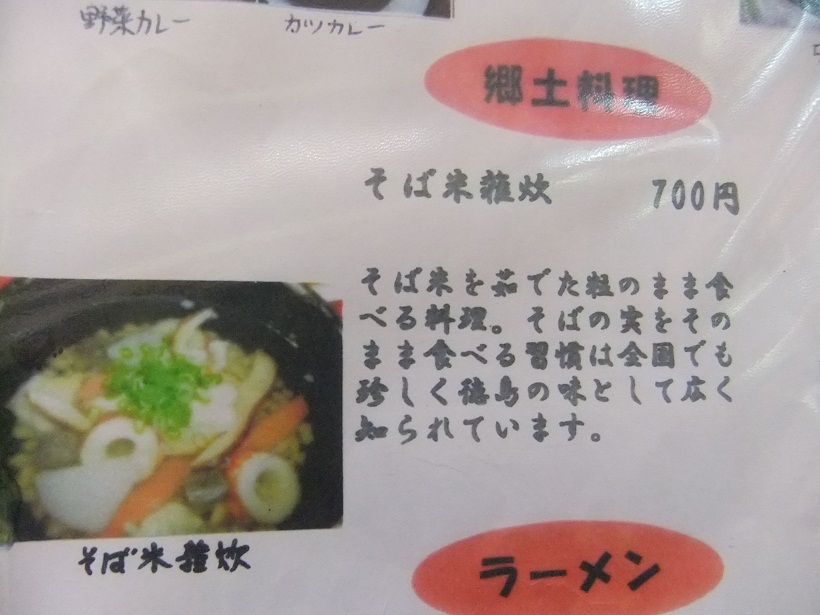 野菜カレー
カツカレー
郷土料理
そば米雑炊 700円
そば米を茹でた粒のまま食
べる料理。そばの実をその
まま食べる習慣は全国でも
珍しく徳島の味として広く
知られています。
そば米雑炊
ラーメン